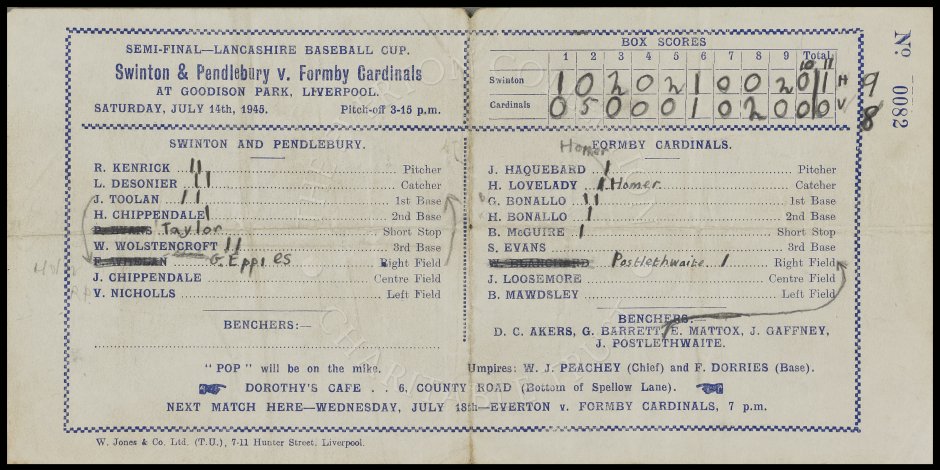 SEMI-FINAL—LANCASHIRE BASEBALL CUP.
Swinton & Pendlebury v. Formby Cardinals
AT GOODISON PARK, LIVERPOOL.
SATURDAY, JULY 14th, 1945. Pitch-off 3-15 p.m.
BOX SCORES
1 2 3 4 5 6 7 8 9 Total
10 11
Swinton 1 0 2 0 2 1 0 0 2 0 1 H 9
Cardinals 0 5 0 0 0 1 0 2 0 0 0 V 8
No. 0082
SWINTON AND PENDLEBURY.
R. KENRICK 11 Pitcher
L. DESONIER 11 Catcher
J. TOOLAN 11 1st Base
H. CHIPPENDALE 1 2nd Base
D. EVANS Taylor Short Stop
W. WOLSTENCROFT 11 3rd Base
WHELAN G. Eppies Right Field
J. CHIPPENDALE Centre Field
V. NICHOLLS Left Field
BENCHERS:—
FORMBY CARDINALS.
Homer
J. HAQUEBARD 1 Pitcher
H. LOVELADY 1 Homer Catcher
G. BONALLO 11 1st Base
H. BONALLO 1 2nd Base
B. McGUIRE 1 Short Stop
S. EVANS 3rd Base
W. BLANCHARD Postlethwaite 1 Right Field
J. LOOSEMORE Centre Field
B. MAWDSLEY Left Field
BENCHERS:—
D. C. AKERS, G. BARRETT, E. MATTOX, J. GAFFNEY,
J. POSTLETHWAITE.
"POP" will be on the mike. Umpires: W. J. PEACHEY (Chief) and F. DORRIES (Base).
DOROTHY'S CAFE . . 6, COUNTY ROAD (Bottom of Spellow Lane).
NEXT MATCH HERE—WEDNESDAY, JULY 18th—EVERTON v. FORMBY CARDINALS, 7 p.m.
W. Jones & Co. Ltd. (T.U.), 7-11 Hunter Street, Liverpool.